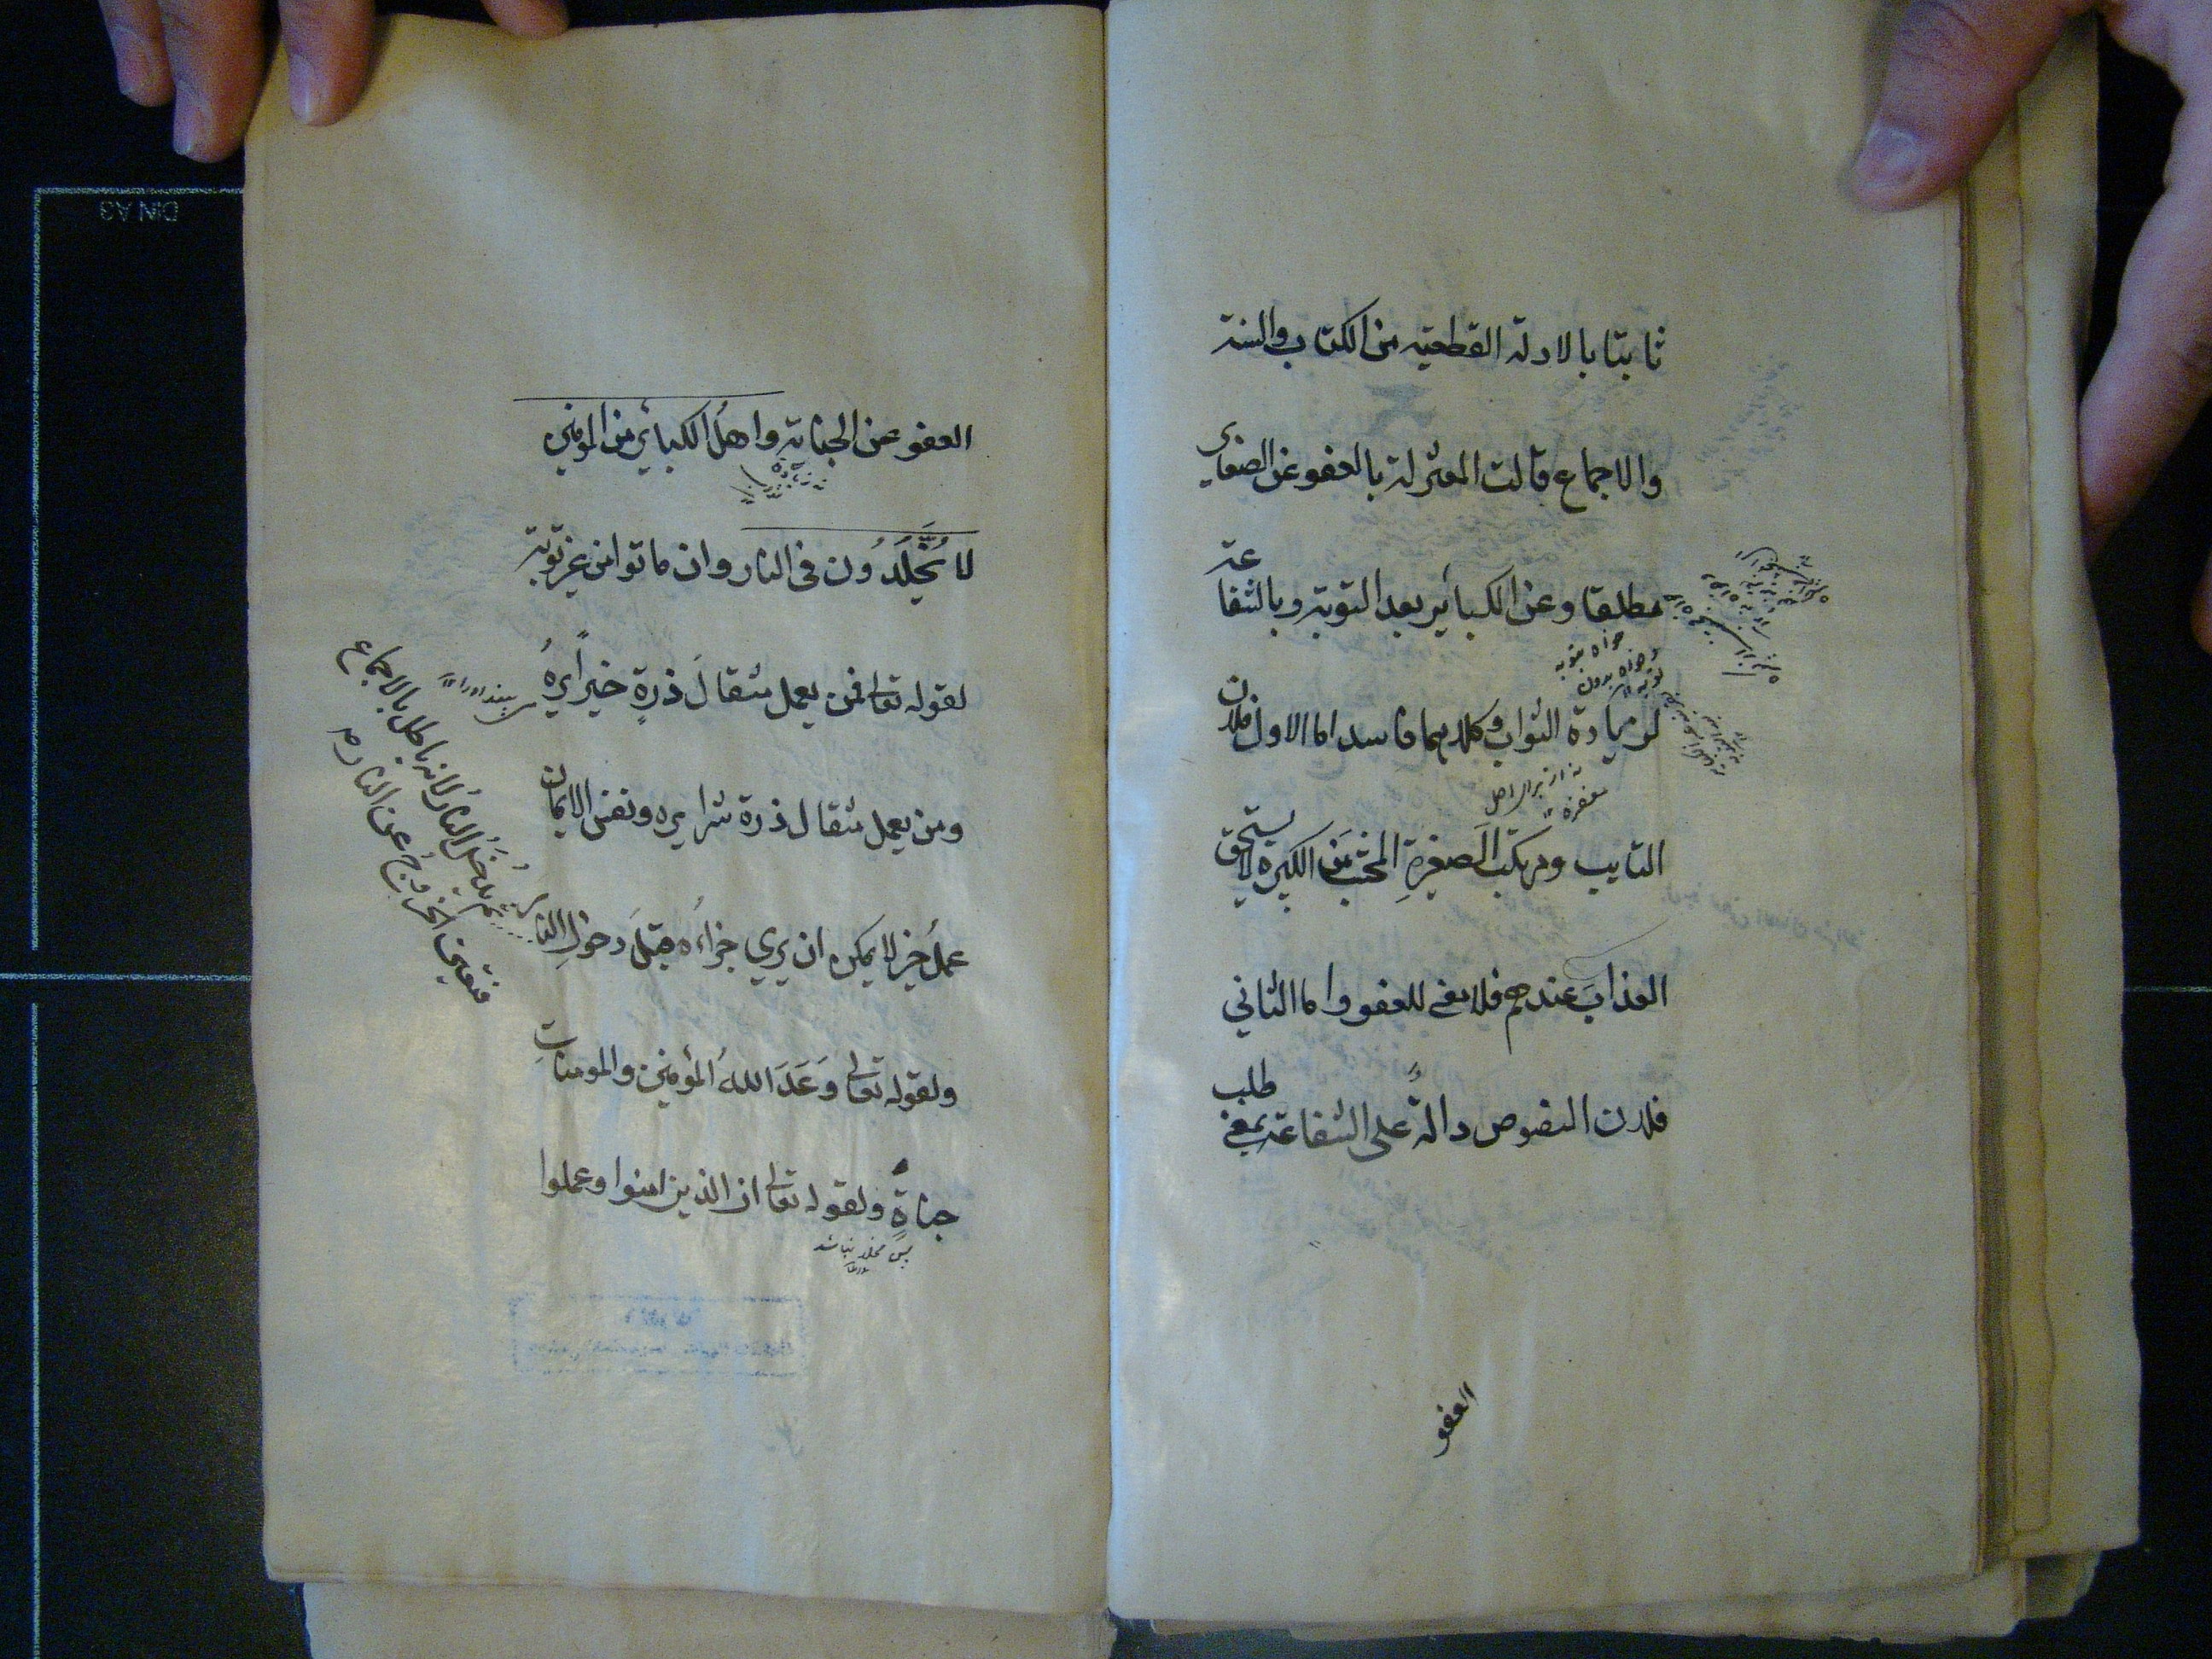 ثابتا بالادلة القطعية من الكتاب والسنة
والاجماع قالت المعتزلة بالعفو عن الصغاير
مطلقا وعن الكبائر بعد التوبة وبالشفاعة
خواه بتوبه
وخواه بدون
توبه
لزيادة الثواب وكلاهما فاسد اما الاول فلان
التايب ومرتكب الصغيرة المجتنب عن الكبيرة لا يستحق
العذاب عندهم فلا معنى للعفو واما الثاني
فلان النصوص دالة على الشفاعة بمعنى طلب
العفو
العفو عن الجناية واهل الكبائر من المومنين
لا يُخَلَّدُون فى النار وان ماتوا من غير توبة
لقوله تعالى فمن يعمل مثقال ذرة خيراً يره
ومن يعمل مثقال ذرة شرا يره ونفس الايمان
عملُ خير لا يمكن ان يري جزاءه قبل دخول النار
ثم يدخل النار لانه باطل بالاجماع
فتعين الخروج عن النار
ولقوله تعالى وَعَدَ اللهُ المؤمنين والمومنات
جناةٍ ولقوله تعالى ان الذين امنوا وعملوا
پس مخلد نباشد
DIN A3